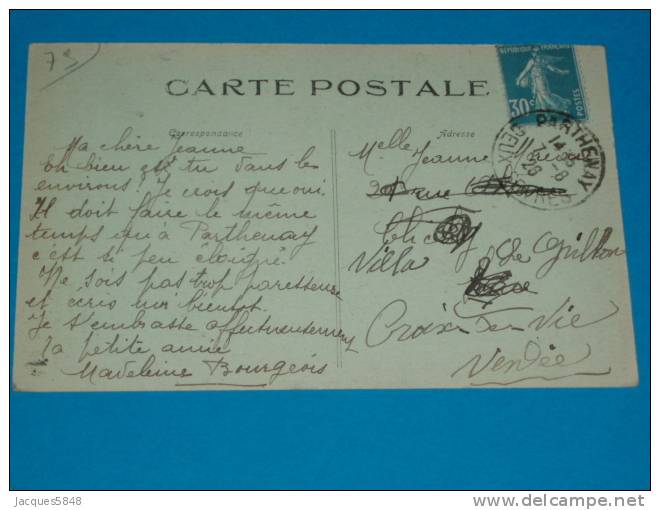 79
CARTE POSTALE
RÉPUBLIQUE FRANÇAISE
30c
POSTES
PARTHENAY
14
7-8
26
DEUX SEVRES
Correspondance
Adresse
Ma chère Jeanne
Eh bien es tu dans les
environs? Je crois que oui.
Il doit faire le même
temps qu'à Parthenay
c'est si peu éloigné.
Ne sois pas trop paresseuse
et écris moi bientôt.
Je t'embrasse affectueusement
Ta petite amie
Madeleine Bourgeois
Melle Jeanne
rue
Villa
Croix-de-Vie
Vendée
Jacques5848
delcampe.net